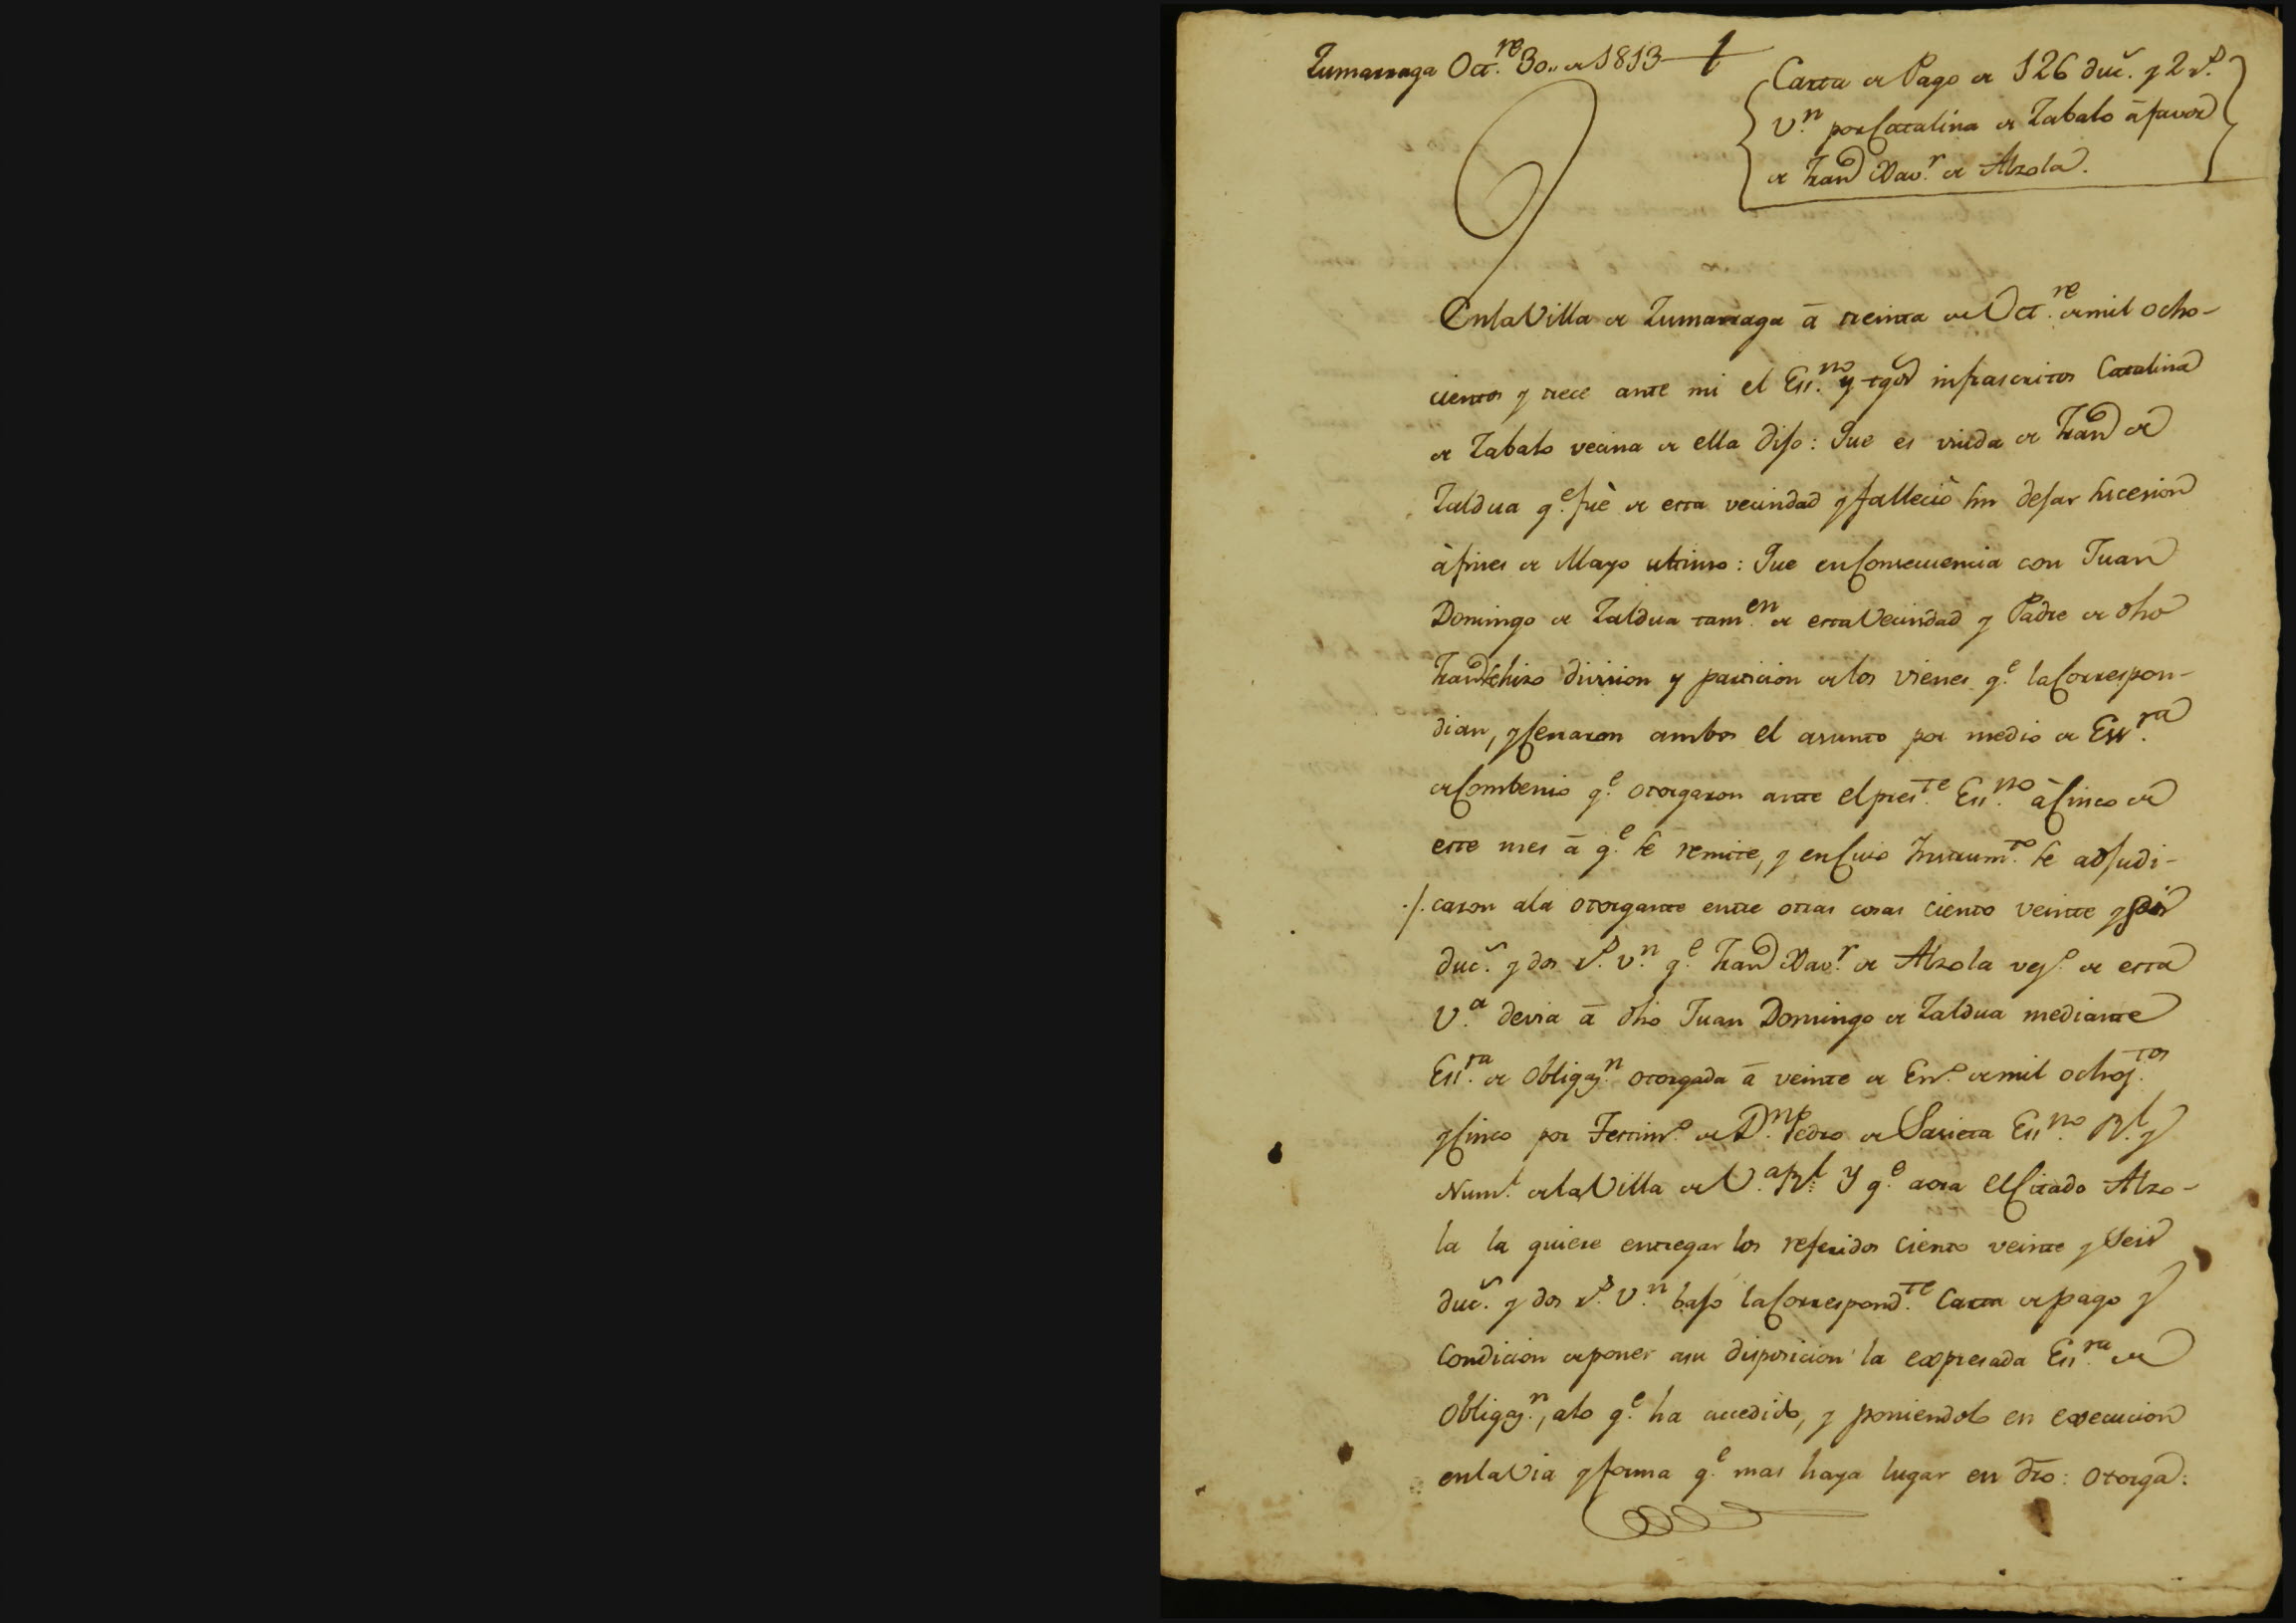 Zumarraga Oct.re 30,, de 1813
Carta de Pago de 126 duc.s y 2 r.s
v.n por Catalina de Zabalo á favor
de Fran.co Xav.r de Alzola.
En la Villa de Zumarraga á treinta de Oct.re de mil ocho-
cientos y trece ante mi el Ess.no y tgos infrascritos Catalina
de Zabalo vecina de ella dijo: Que es viuda de Fran.co de
Zaldua q.e fuè de esta vecindad y falleciò sin dejar sucesion
à fines de Mayo ultimo: Que en consecuencia con Juan
Domingo de Zaldua tam.en de esta Vecindad y Padre de dho
Fran.co se hizo division y particion de los vienes q.e la Correspon-
dian, y senaron ambos el asunto por medio de Ess.ra
de Combenio q.e otorgaron ante el pres.te Ess.no à Cinco de
este mes á q.e se remite, y en Cuio Instrum.to se adjudi-
./. caron ala otorgante entre otras cosas ciento veinte y seis
duc.s y dos r.s v.n q.e Fran.co Xav.r de Alzola vez.o de esta
V.a devia á dho Juan Domingo de Zaldua mediante
Ess.ra de Obligaz.n otorgada á veinte de En.o de mil ochoz.tos
y Cinco por Testim.o de D.n Pedro de Sarieta Ess.no R.l y
Num.l de la Villa de V.a R.l Y q.e aora el Citado Alzo-
la la quiere entregar los referidos ciento veinte y Seis
duc.s y dos r.s V.n bajo la Correspond.te Carta de pago y
Condicion de poner asu disposicion la expresada Ess.ra de
Obligaz.n, alo q.e ha accedido, y poniendolo en execucion
en la Via y forma q.e mas haya lugar en dro: Otorga: